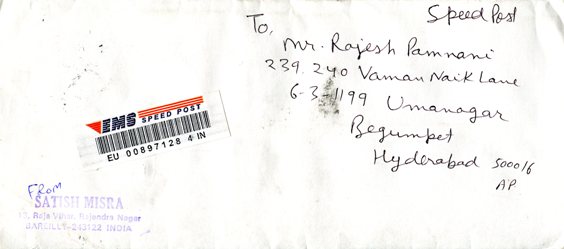 Speed Post
To,
Mr. Rajesh Pamnani
239.240 Vaman Naik Lane
6-3-1199 Umanagar
Begumpet
Hyderabad 500016
AP
EMS SPEED POST
EU 00897128 4 IN
FROM
SATISH MISRA
Raja Vihar, Rajendra Nagar
BAREILLY-243122 INDIA